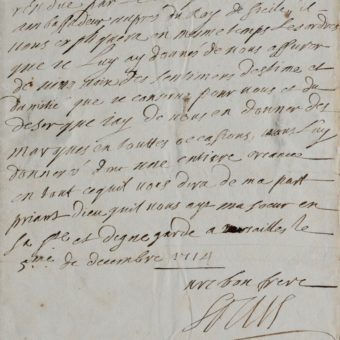 ambassadeur aupres du Roy de Sicile, il
vous expliquera en mesme temps les ordres
que je luy ay donnés de vous assurer
de nouveau des sentimens d'estime et
d'amitié que je conserve pour vous et du
desir que j'ay de vous en donner des
marques en touttes occasions, vous luy
donnerés donc une entiere creance
en tout ce qu'il vous dira de ma part
priant Dieu qu'il vous aye ma soeur en
sa ste et digne garde a versailles le
5me de decembre 1714
vre bon frere
Louis